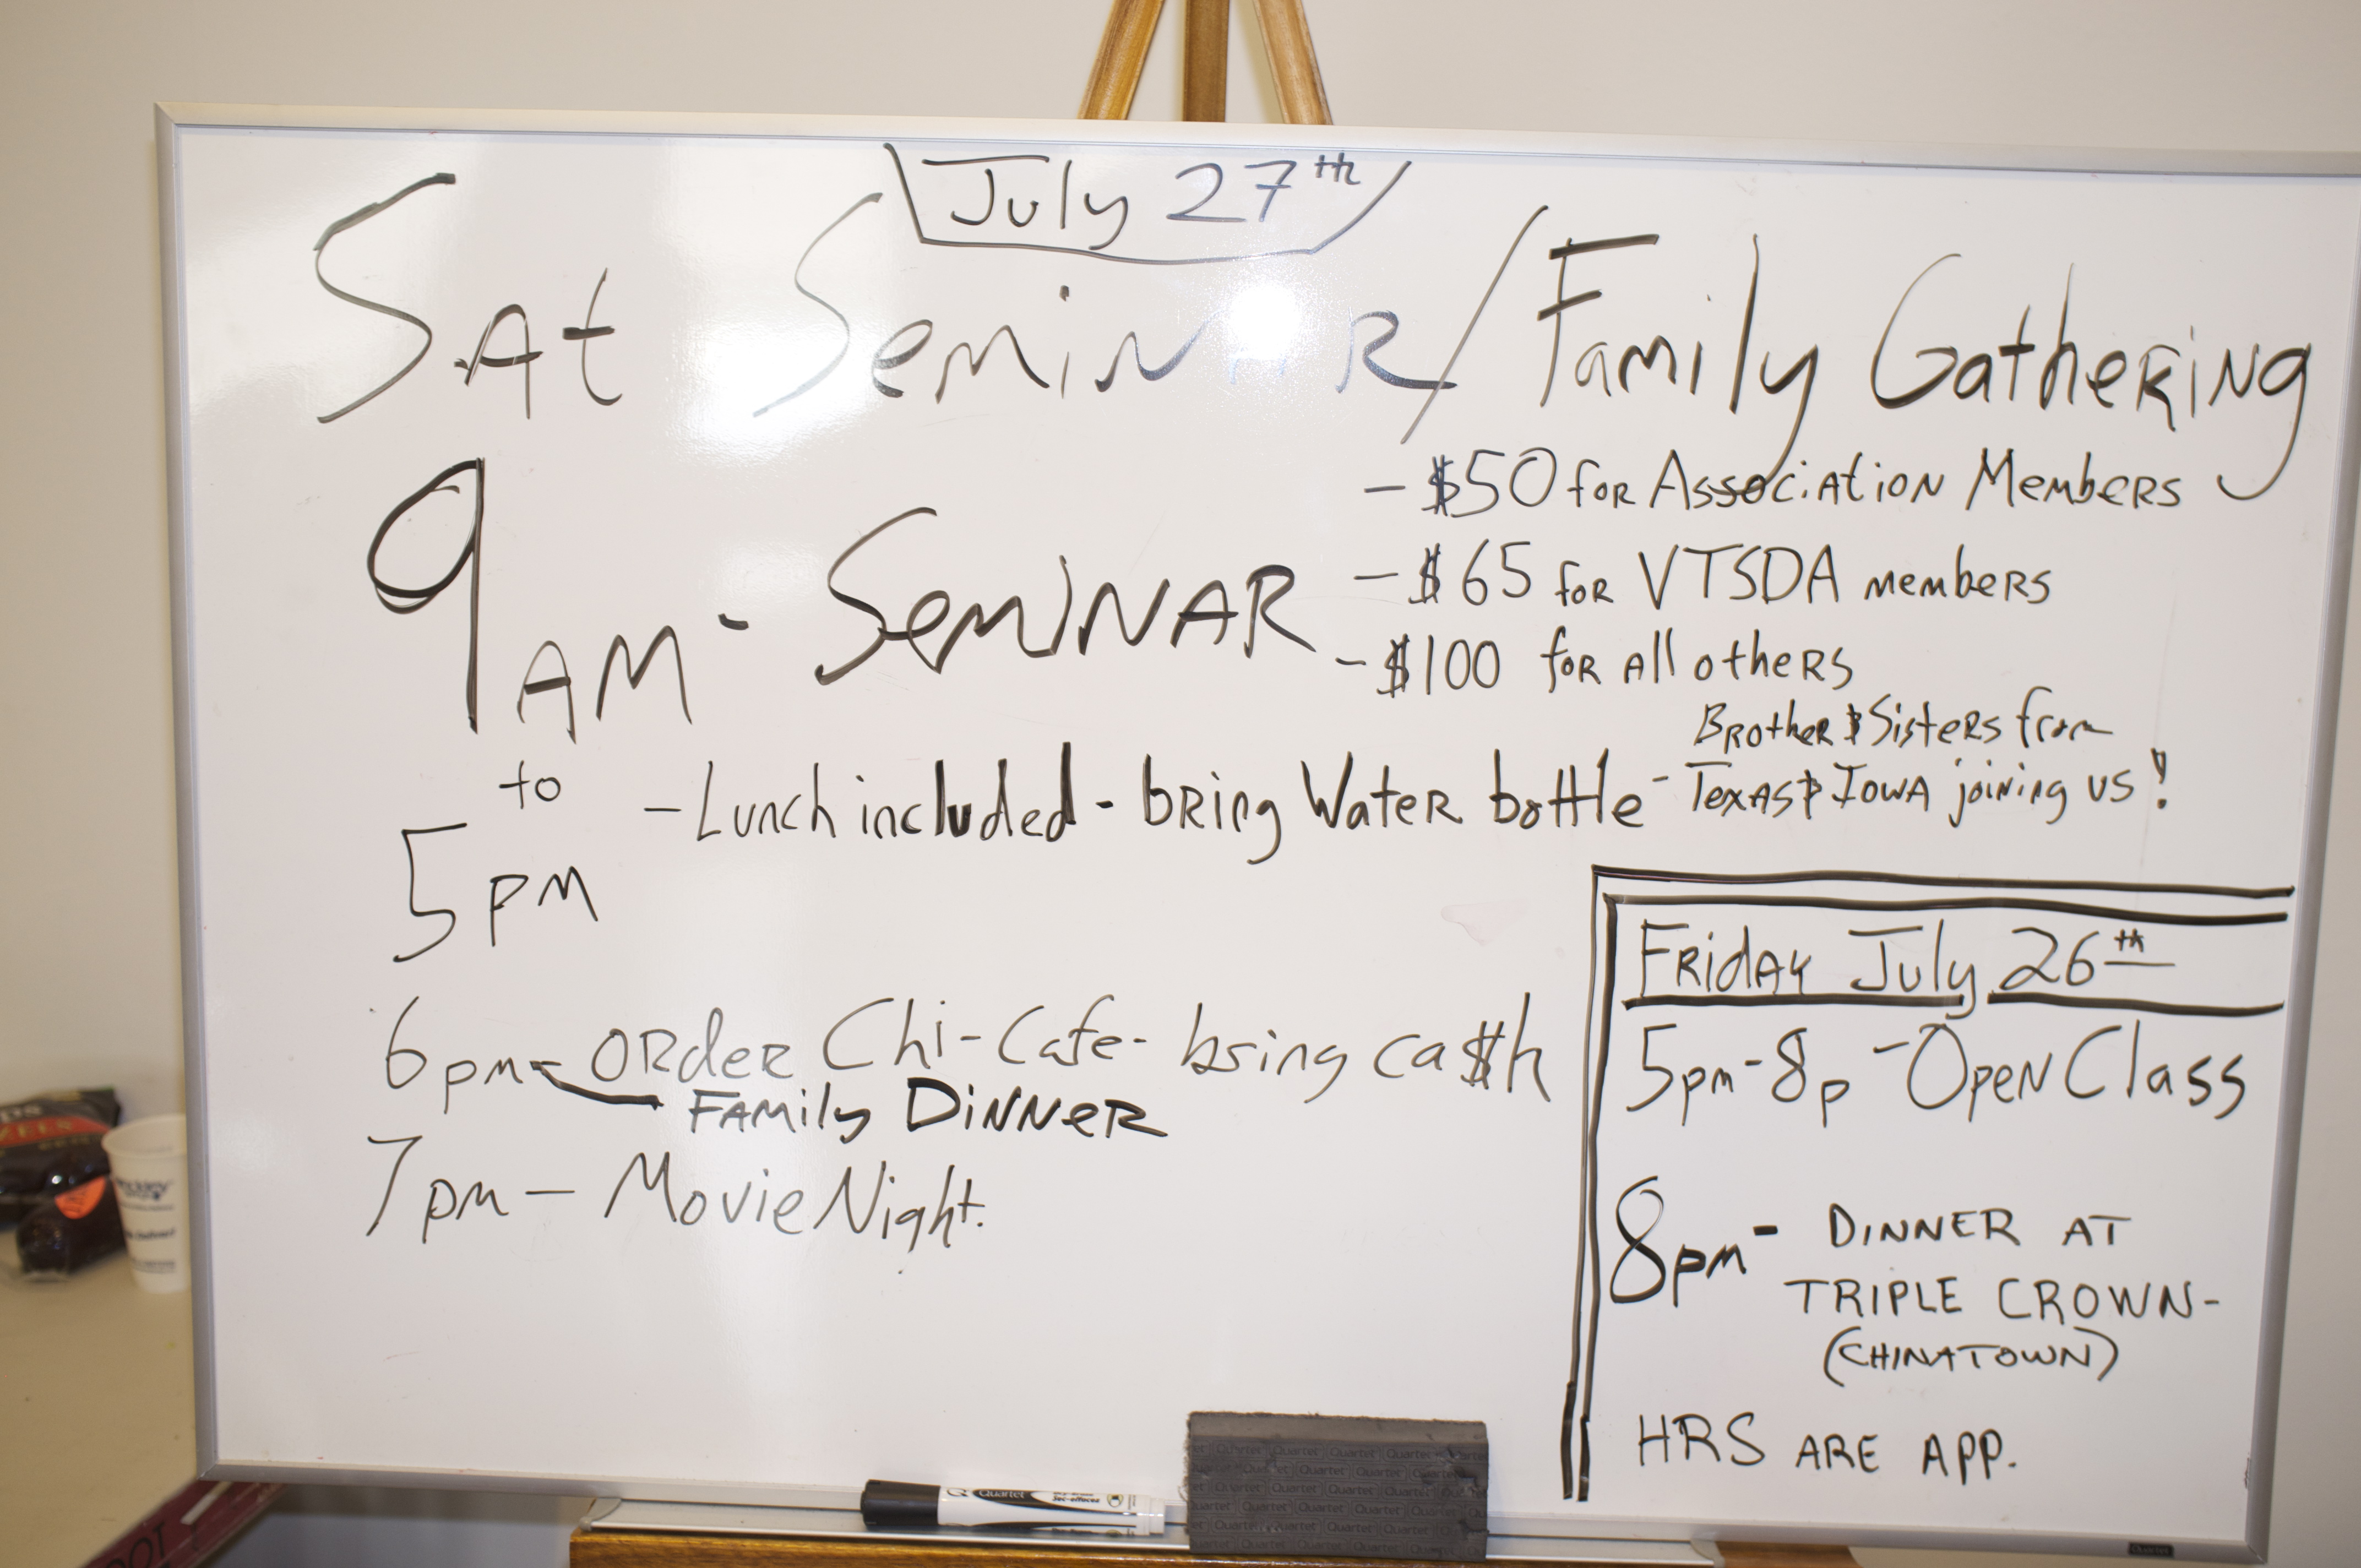 July 27th
Sat Seminar/Family Gathering
9AM - Seminar
- $50 for Association Members
- $65 for VTSDA members
- $100 for all others
to
5pm
- Lunch included - bring Water bottle -
Brother & Sisters from
Texas & Iowa joining us!
6pm - Order Chi-Cafe - bring ca$h
Family Dinner
7pm - Movie Night.
Friday July 26th
5pm-8p - Open Class
8pm - DINNER AT
TRIPLE CROWN-
(CHINATOWN)
HRS ARE APP.
Quartet
Quartet